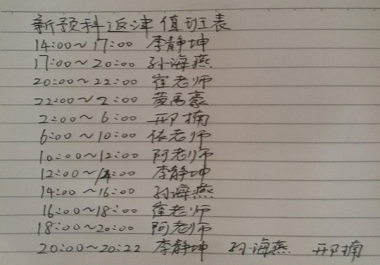 新预科返津值班表
14:00~17:00 李静坤
17:00~20:00 孙海燕
20:00~22:00 崔老师
22:00~2:00 黄禹豪
2:00~6:00 邢楠
6:00~10:00 依老师
10:00~12:00 阿老师
12:00~14:00 李静坤
14:00~16:00 孙海燕
16:00~18:00 崔老师
18:00~20:00 阿老师
20:00~20:22 李静坤 孙海燕 邢楠